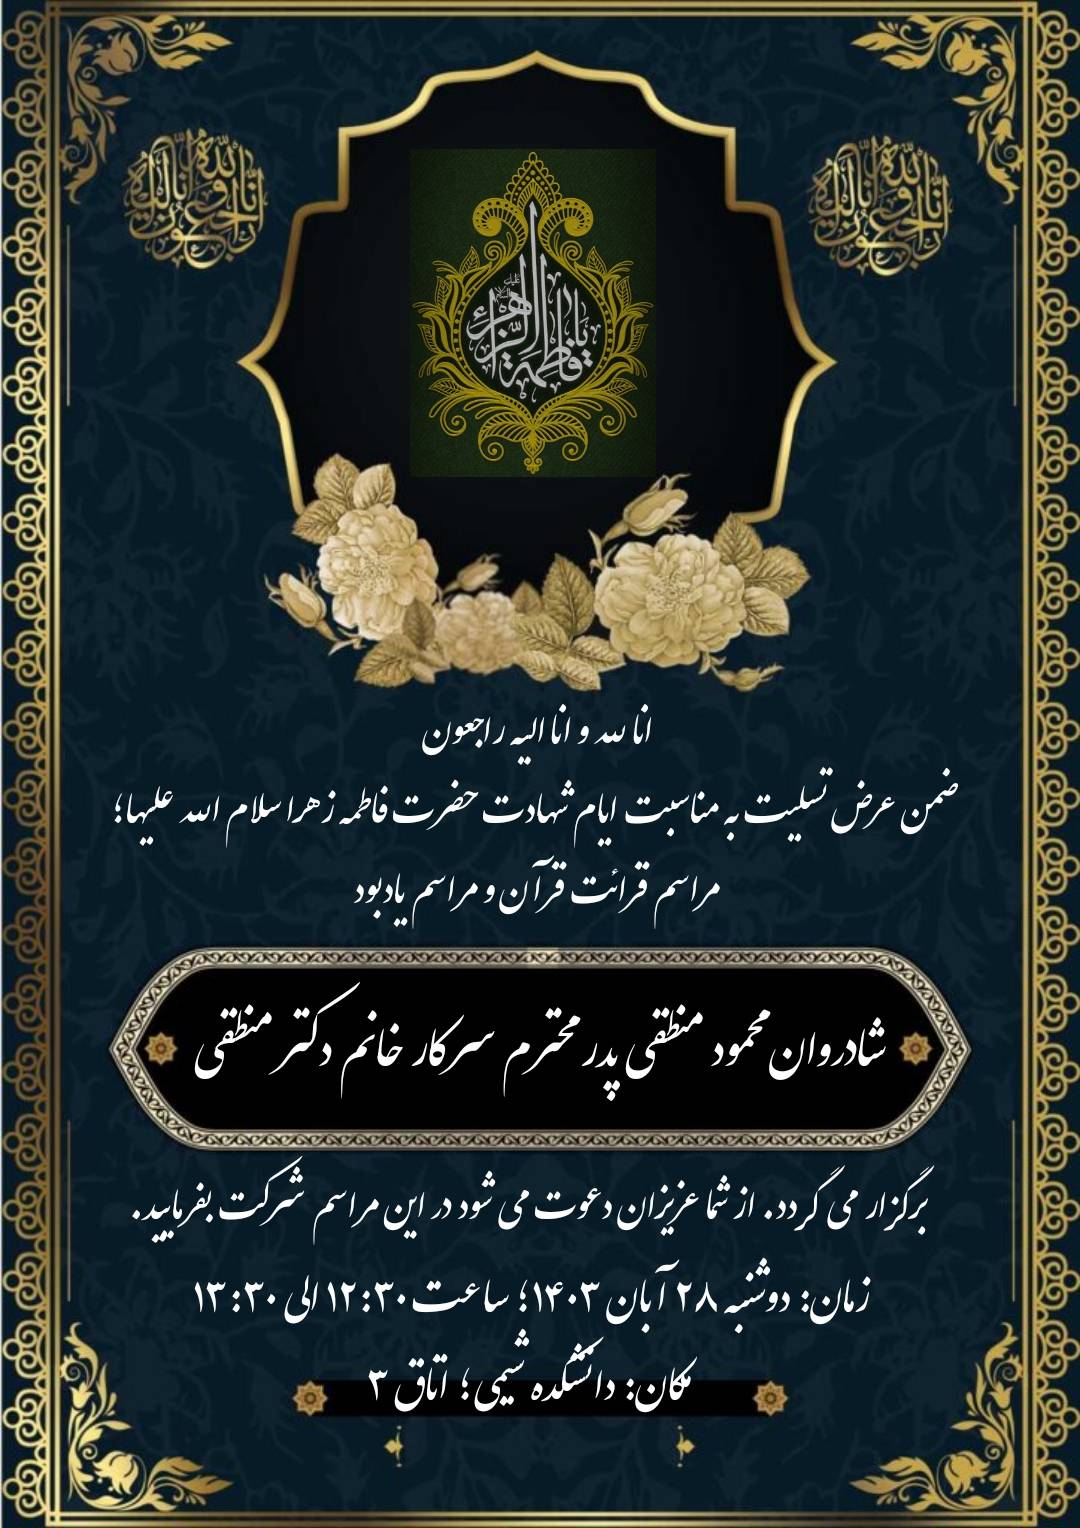 انا لله و انا الیه راجعون
انا لله و انا الیه راجعون
یا فاطمة الزهراء
علیها السلام
انا لله و انا الیه راجعون
ضمن عرض تسلیت به مناسبت ایام شهادت حضرت فاطمه زهرا سلام الله علیها؛
مراسم قرائت قرآن و مراسم یادبود
شادروان محمود منطقی پدر محترم سرکار خانم دکتر منطقی
برگزار می گردد. از شما عزیزان دعوت می شود در این مراسم شرکت بفرمایید.
زمان: دوشنبه ۲۸ آبان ۱۴۰۳؛ ساعت ۱۲:۳۰ الی ۱۳:۳۰
مکان: دانشکده شیمی؛ اتاق ۳